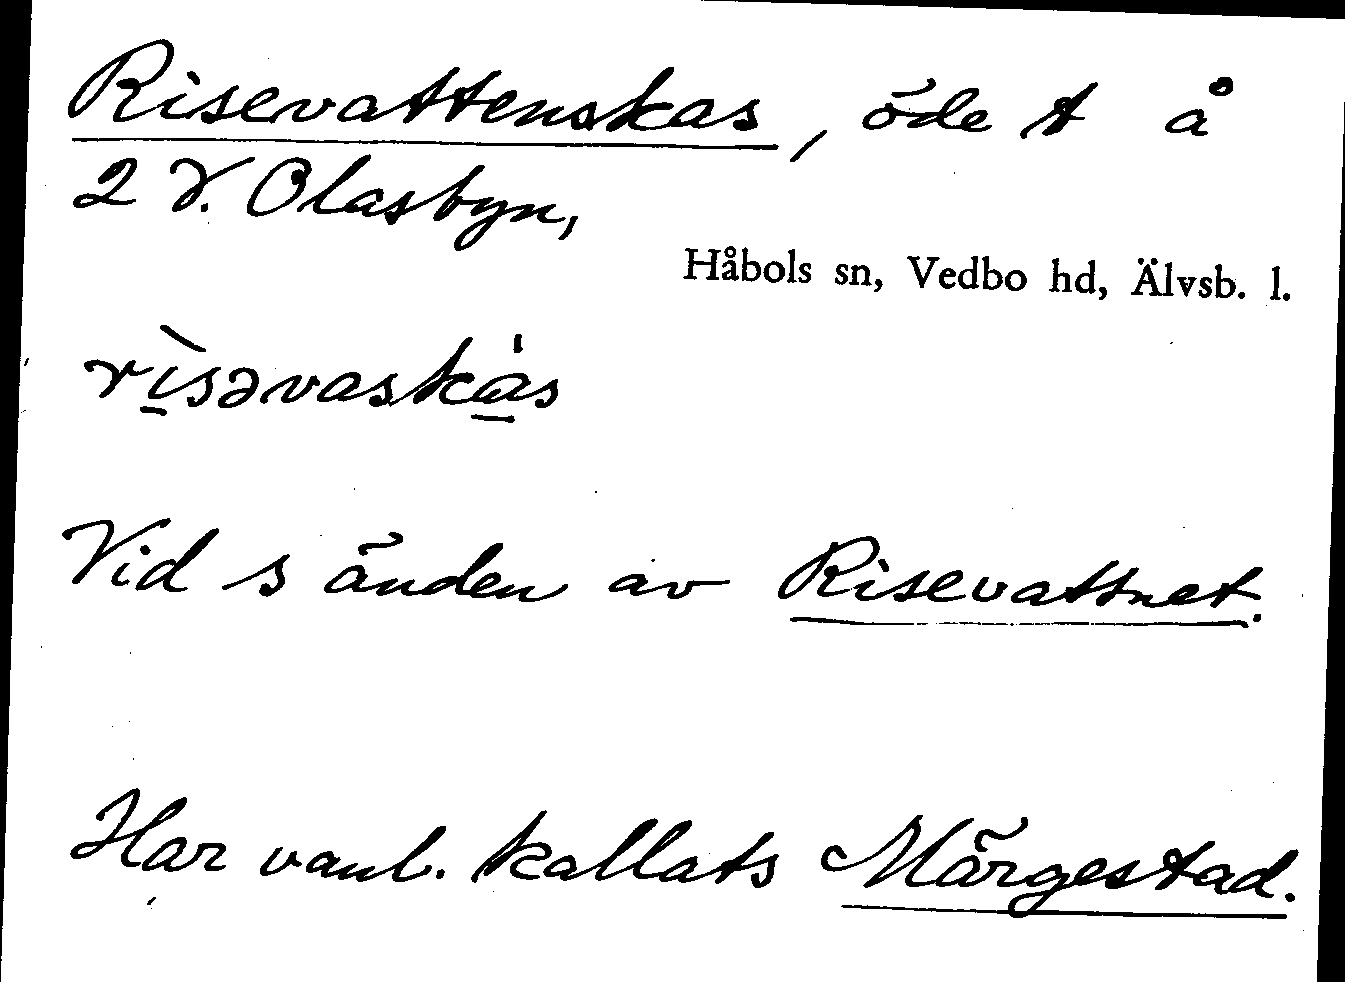 Risevattenskas, öde t å
2 V. Olasbyn,
Håbols sn, Vedbo hd, Älvsb. l.
rìsəvaskás
Vid s änden av Risevattnet.
Har vanl. kallats Märgestad.